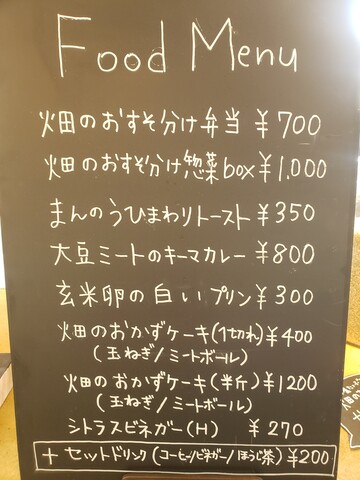 Food Menu
畑のおすそ分け弁当 ¥700
畑のおすそ分け惣菜box ¥1,000
まんのうひまわりトースト ¥350
大豆ミートのキーマカレー ¥800
玄米卵の白いプリン ¥300
畑のおかずケーキ(1切れ) ¥400
(玉ねぎ/ミートボール)
畑のおかずケーキ(半斤) ¥1200
(玉ねぎ/ミートボール)
シトラスビネガー(H) ¥270
+ セットドリンク(コーヒー/ビネガー/ほうじ茶) ¥200